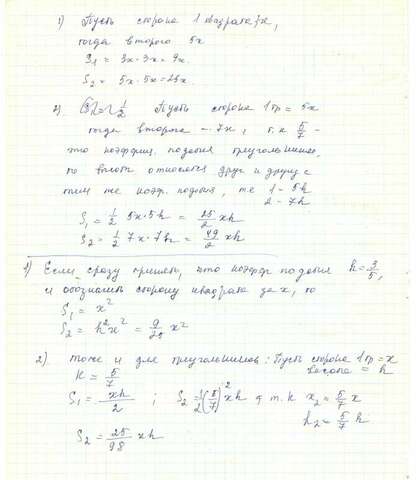 1) Пусть сторона 1 квадрата 3x,
тогда второго 5x
S₁ = 3x · 3x = 9x
S₂ = 5x · 5x = 25x
2) 1/2 Пусть сторона 1 тр = 5x
тогда второго — 7x, т.к 5/7 -
это коэффиц. подобия треугольников,
то высоты относятся друг к другу с
тем же коэф. подобия, т.е 1 - 5h
2 - 7h
S₁ = 1/2 5x · 5h = 25/2 xh
S₂ = 1/2 7x · 7h = 49/2 xh
1) Если сразу принять, что коэфф подобия k = 3/5,
и обозначить сторону квадрата за x, то
S₁ = x²
S₂ = k²x² = 9/25 x²
2) тоже и для треугольников: Пусть сторона 1 тр = x
высота = h
k = 5/7
S₁ = xh/2 ; S₂ = 1/2 (5/7)² xh т.к x₂ = 5/7 x
h₂ = 5/7 h
S₂ = 25/98 xh